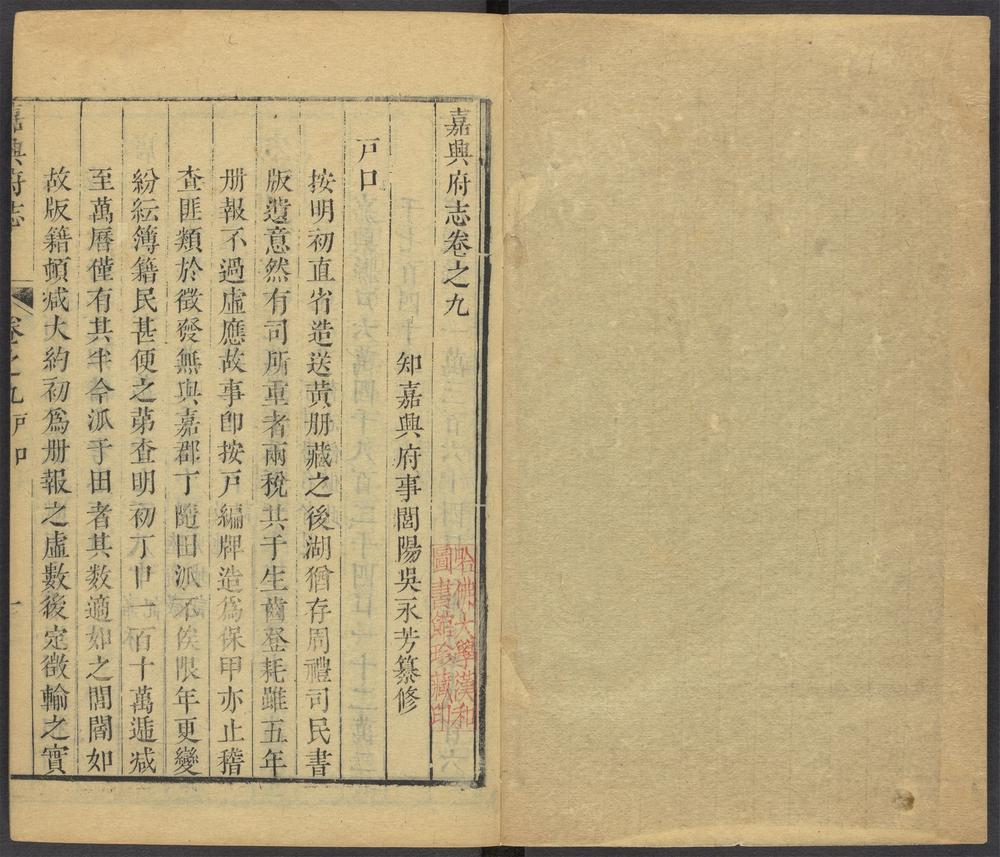 嘉興府志卷之九
知嘉興府事閭陽吳永芳纂修
戸口
按明初直省造送黄册藏之後湖猶存周禮司民書
版遺意然有司所重者兩稅其于生齒登耗雖五年
册報不過虛應故事卽按戸編牌造爲保甲亦止稽
查匪類於徵發無與嘉郡丁隨田派不俟限年更變
紛紜簿籍民甚便之苐查明初丁口百十萬遞减
至萬曆僅有其半今派于田者其数適如之閭閻如
故版籍頓减大約初爲册報之虛數後定徵輸之實
嘉興府志
卷之九戸口
一
哈佛大學漢和
圖書館珍藏印